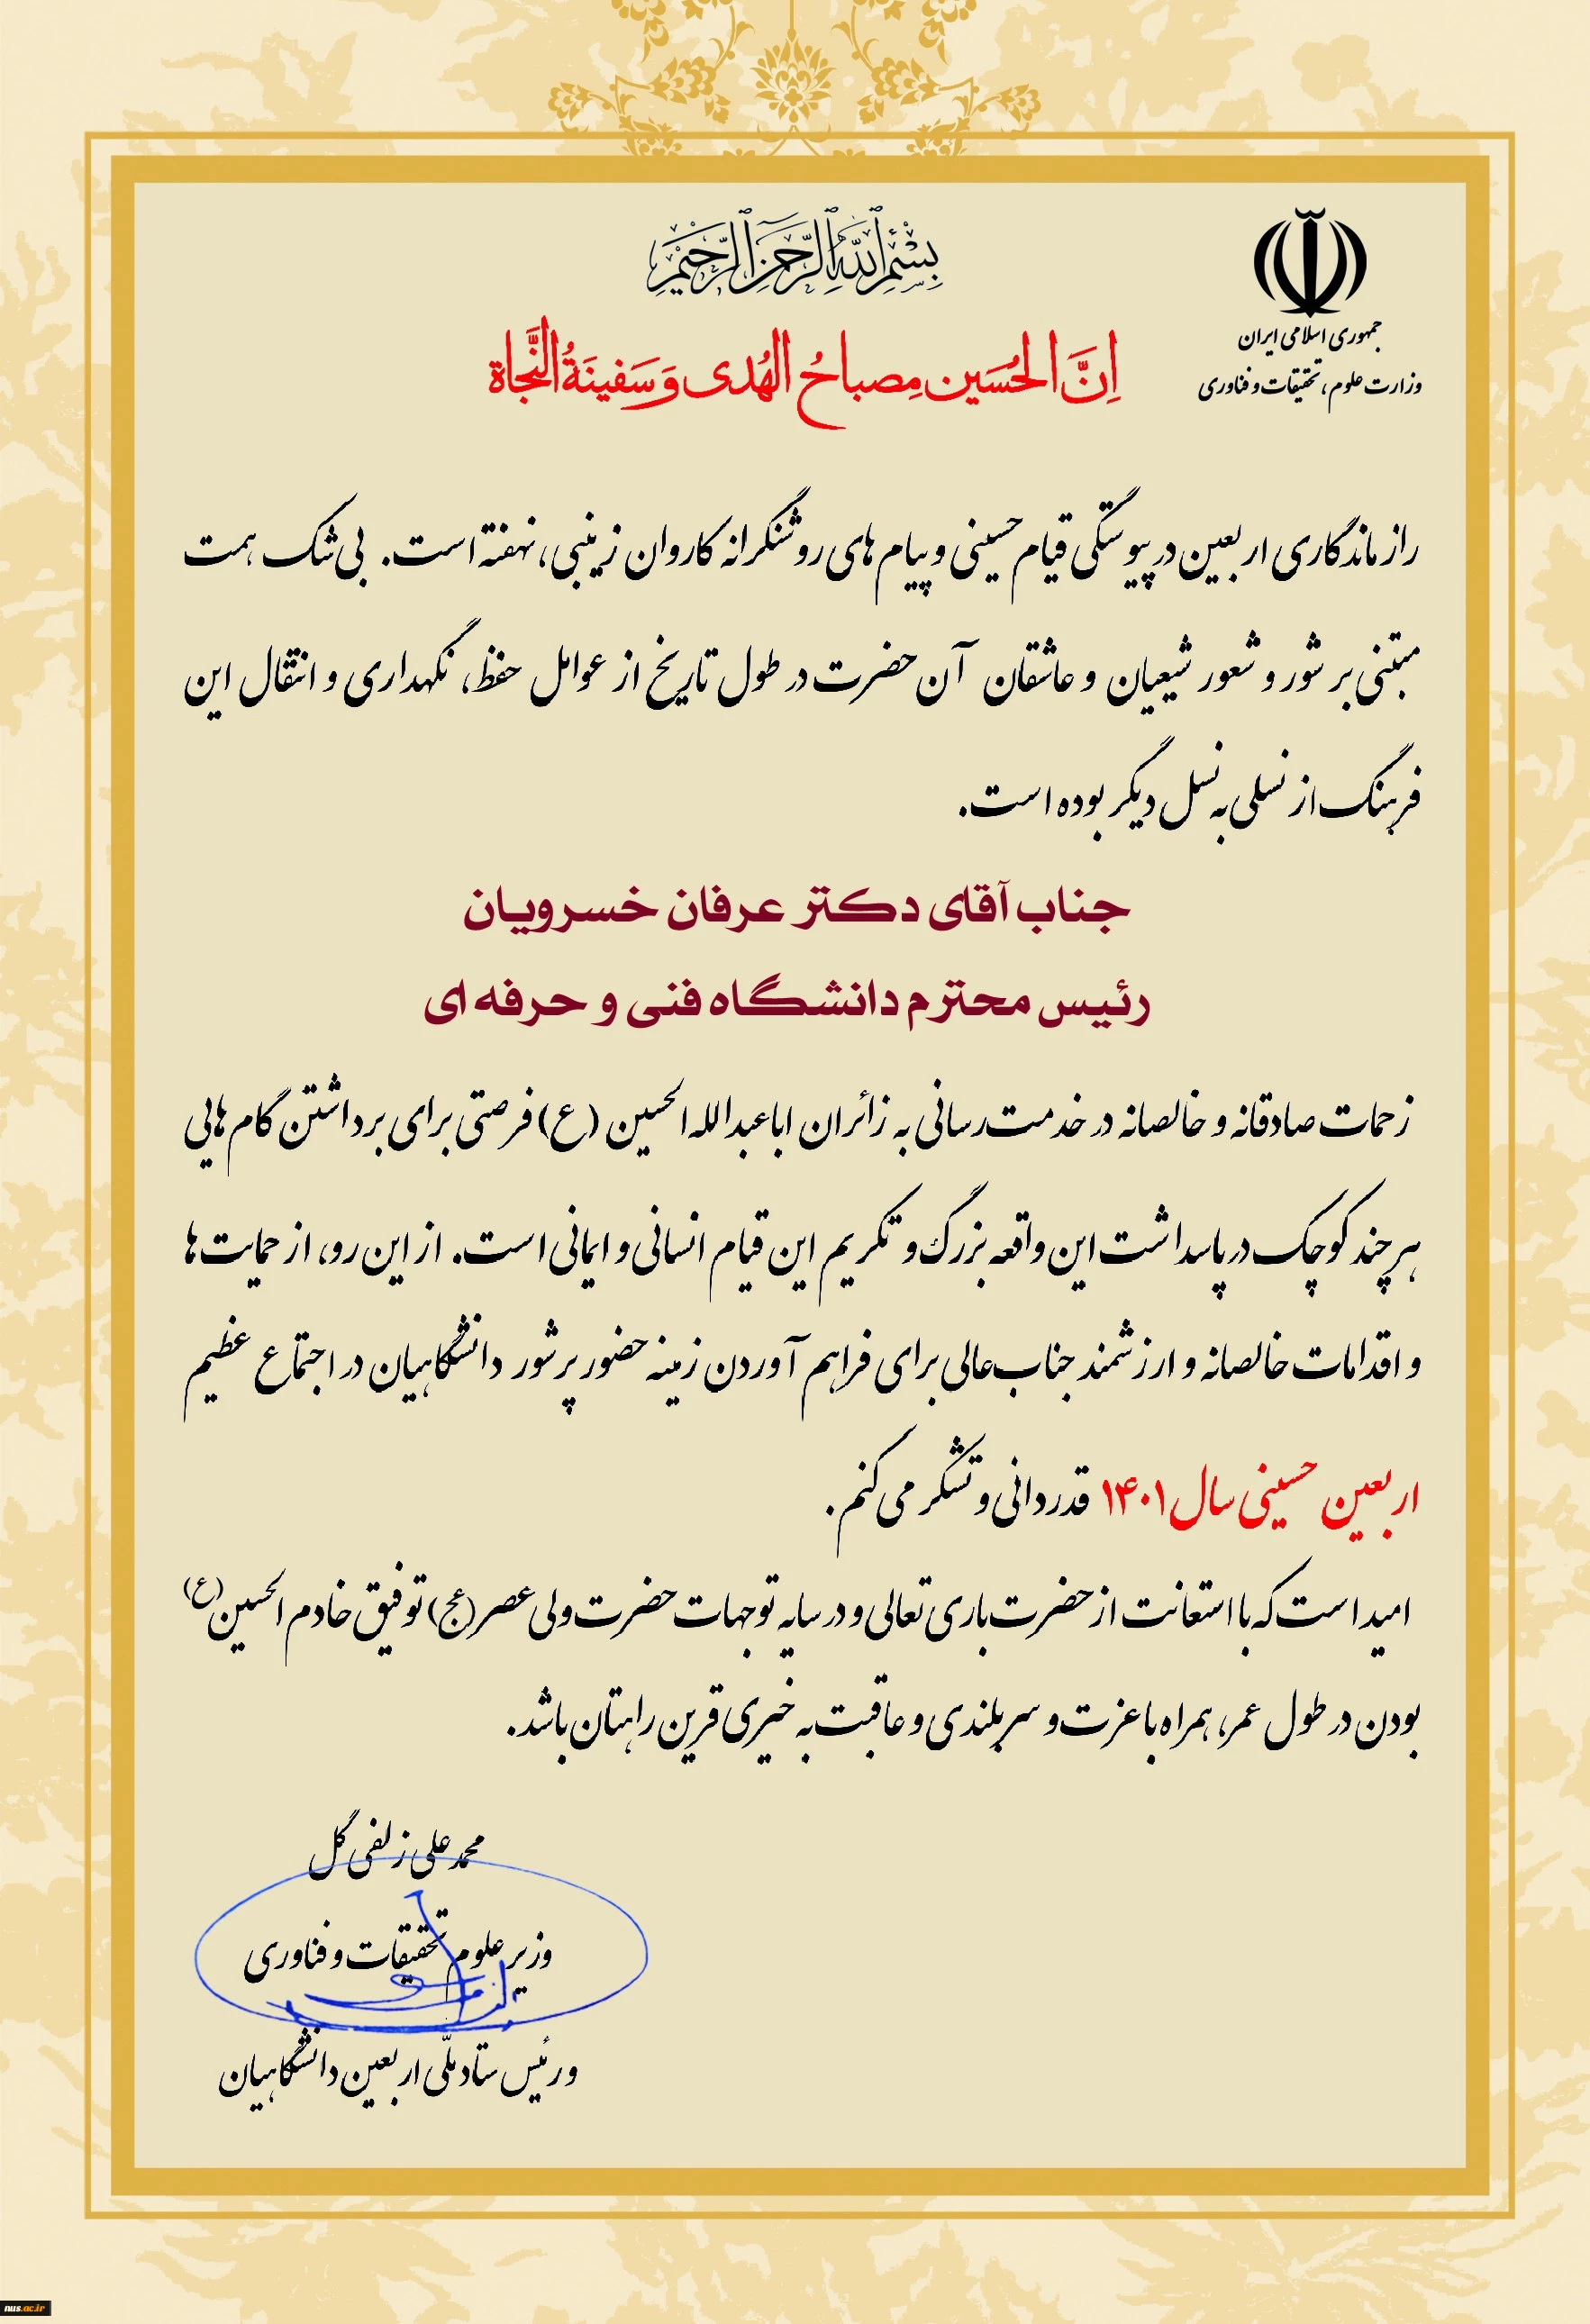 بِسْمِ اللهِ الرَّحْمنِ الرَّحیمِ
جمهوری اسلامی ایران
وزارت علوم، تحقیقات و فناوری
اِنَّ الحُسَین مِصباحُ الهُدی وَ سَفینَةُ النَّجاة
راز ماندگاری اربعین در پیوستگی قیام حسینی و پیام های روشنگرانه کاروان زینبی، نهفته است. بی شک همت
مبتنی بر شور و شعور شیعیان و عاشقان آن حضرت در طول تاریخ از عوامل حفظ، نگهداری و انتقال این
فرهنگ از نسلی به نسل دیگر بوده است.
جناب آقای دکتر عرفان خسرویان
رئیس محترم دانشگاه فنی و حرفه ای
زحمات صادقانه و خالصانه در خدمت رسانی به زائران اباعبدالله الحسین (ع) فرصتی برای برداشتن گام هایی
هر چند کوچک در پاسداشت این واقعه بزرگ و تکریم این قیام انسانی و ایمانی است. از این رو، از حمایت ها
و اقدامات خالصانه و ارزشمند جناب عالی برای فراهم آوردن زمینه حضور پرشور دانشگاهیان در اجتماع عظیم
اربعین حسینی سال ۱۴۰۱ قدردانی و تشکر می کنم.
امید است که با استعانت از حضرت باری تعالی و در سایه توجهات حضرت ولی عصر (عج) توفیق خادم الحسین (ع)
بودن در طول عمر، همراه با عزت و سربلندی و عاقبت به خیری قرین راهتان باشد.
محمد علی زلفی گل
وزیر علوم تحقیقات و فناوری
و رئیس ستاد ملّی اربعین دانشگاهیان
nus.ac.ir